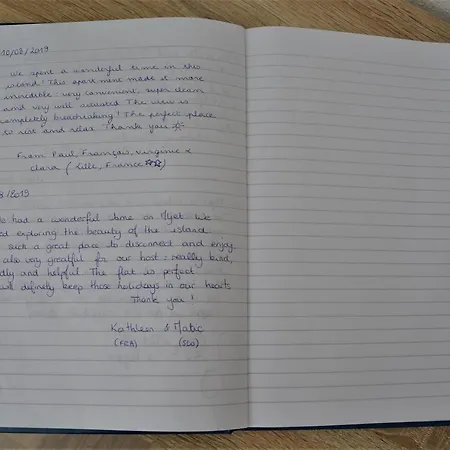 10/08/2019
We spent a wonderful time in this
island! This apartment made it more
incredible: very convenient, super clean
and very well situated. The view is
completely breathtaking! The perfect place
to rest and relax. Thank you
From Paul, François, Virginie &
Clara (Lille, France)
8/2019
had a wonderful time on We
ed exploring the beauty of the island
Such a great place to disconnect and enjoy
also very greatful for our host: really kind,
dly and helpful. The flat is perfect
will definetly keep these holidays in our hearts
Thank you!
Kathleen & Matic
(FRA) (SLO)